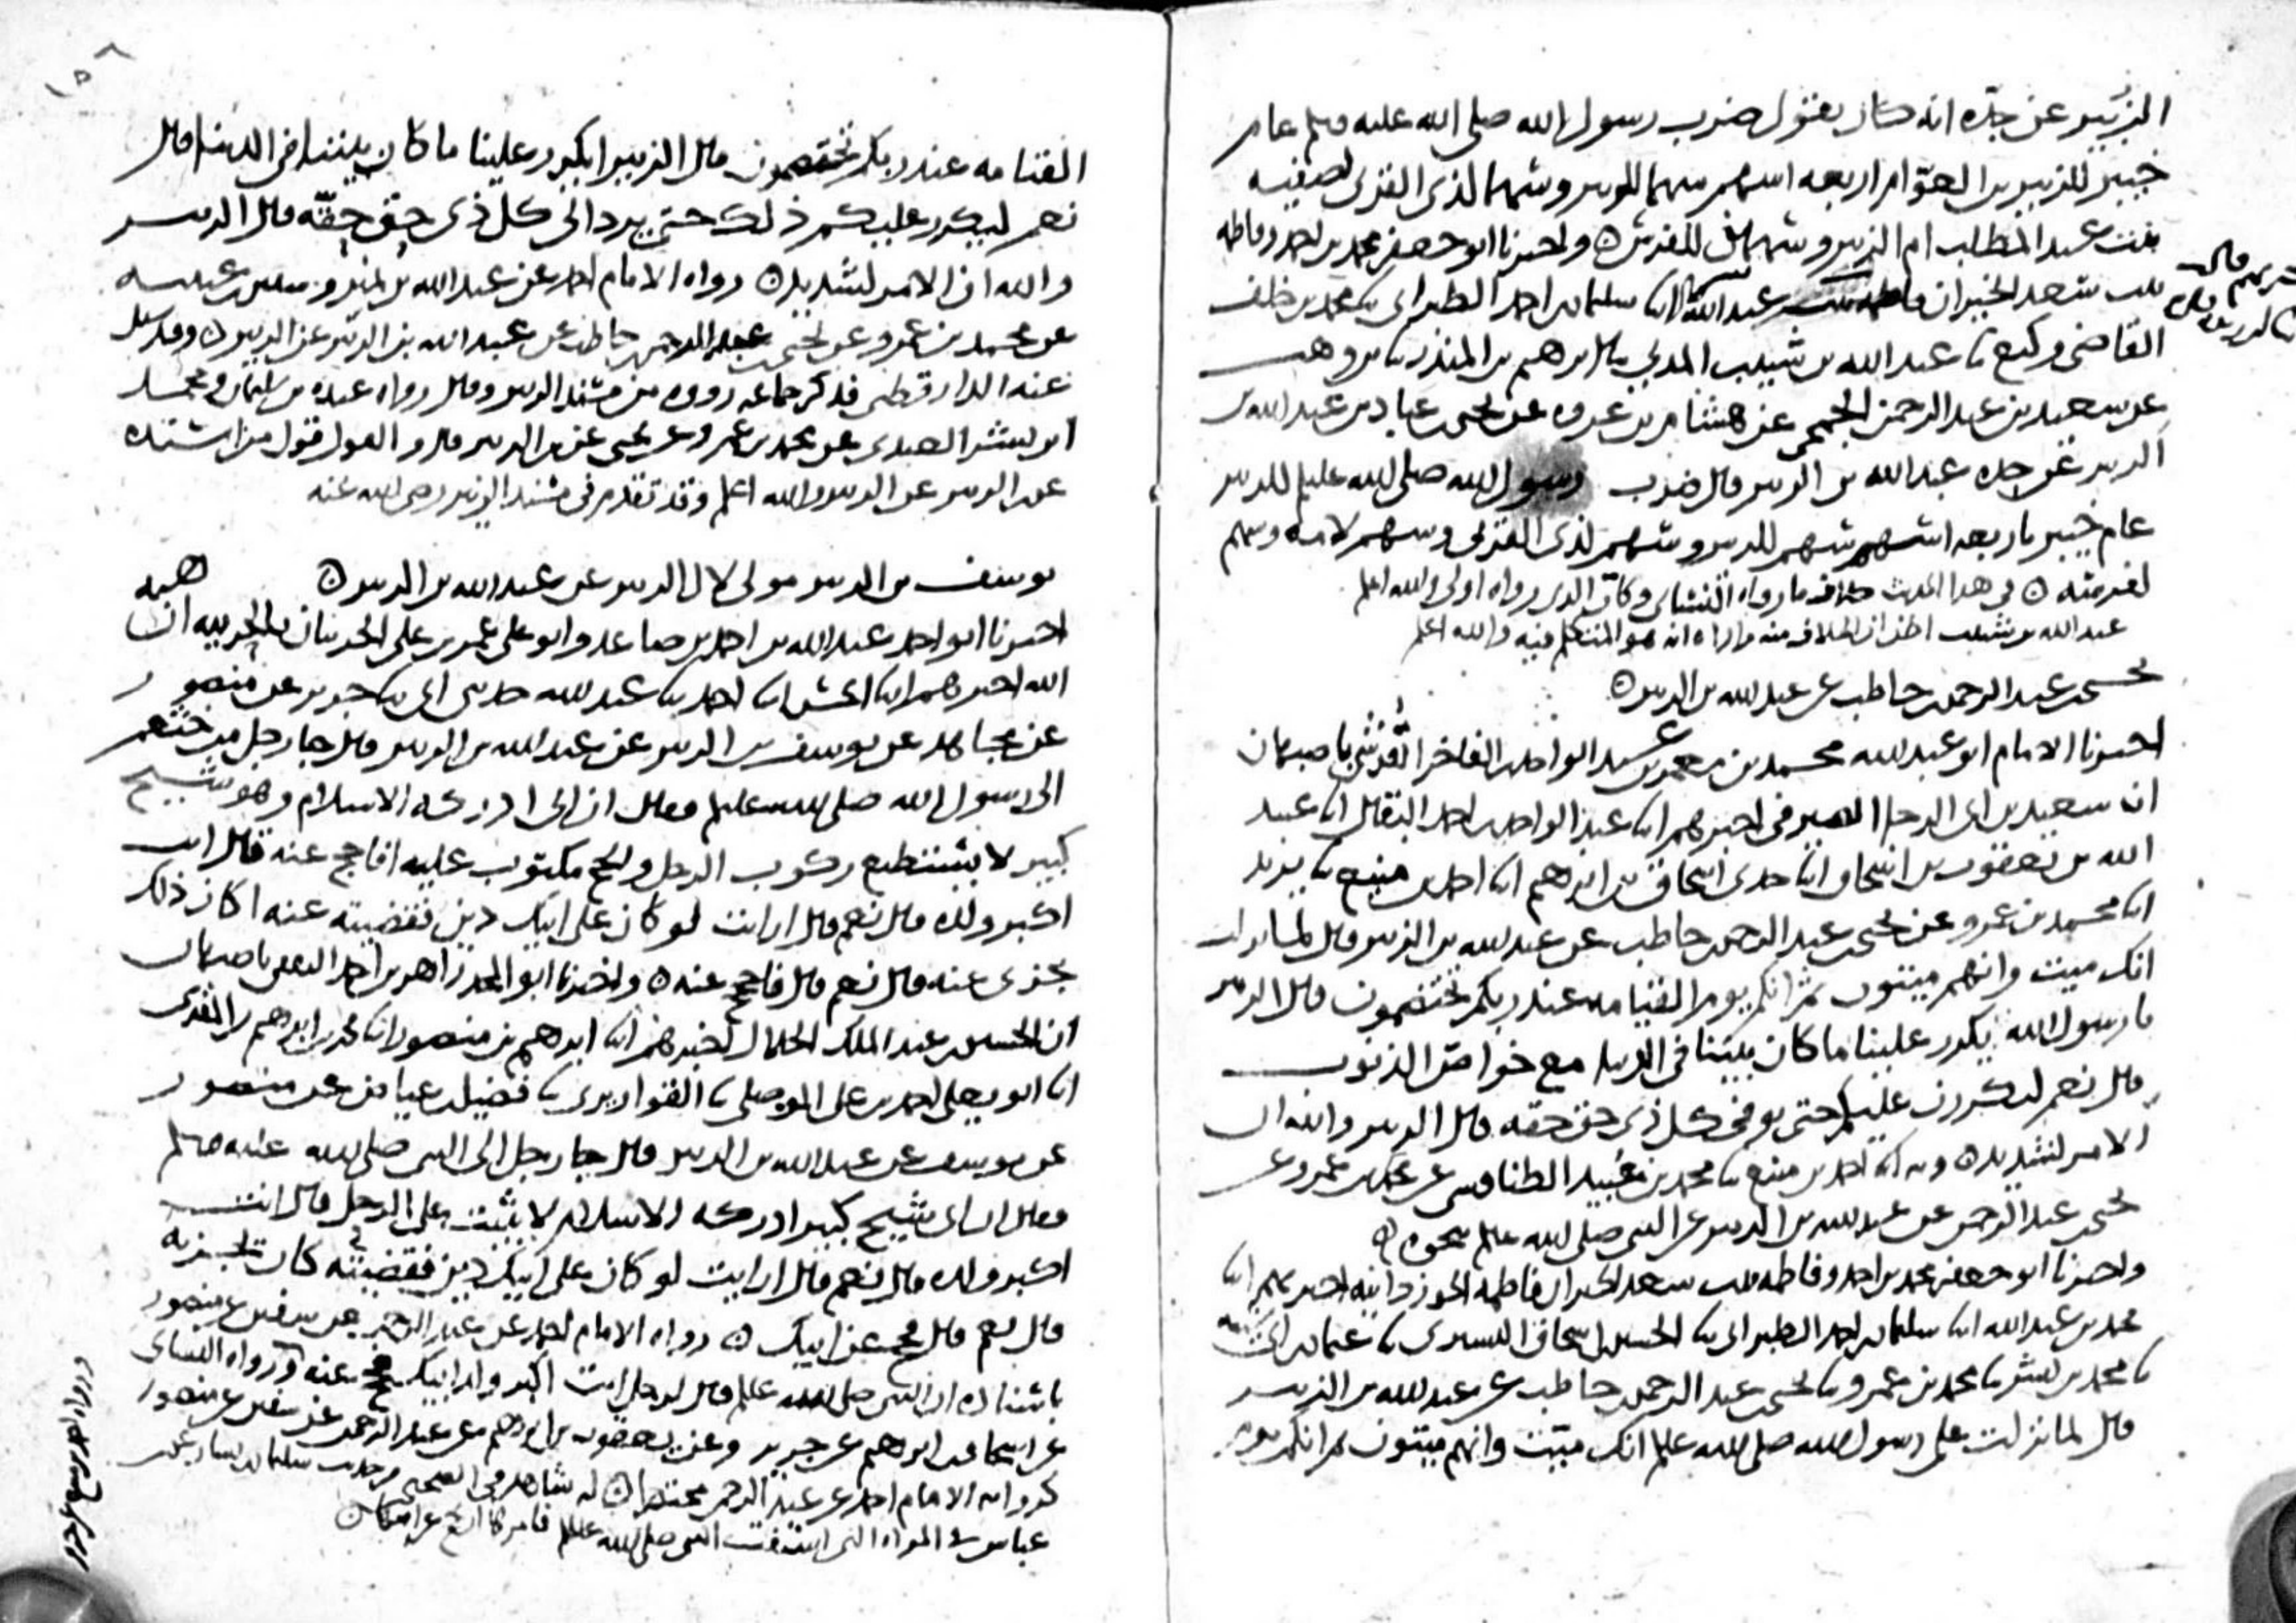 الزبير عن جده انه كان يقول ضرب رسول الله صلى الله عليه وسلم عام
خيبر للزبير بن العوام اربعه اسهم سهما للزبير وسهما لذى القربى لصفيه
بنت عبد المطلب ام الزبير وسهمين للفرس ٥ واخبرنا ابو جعفر محمد بن احمد وفاطمه
بنت سعد الخير ان فاطمه بنت عبد الله انا سليمان بن احمد الطبرانى نا محمد بن خلف
القاضى وكيع نا عبد الله بن شبيب المدنى نا ابرهيم بن المنذر نا بن وهب
عن سعيد بن عبد الرحمن الجمحى عن هشام بن عروه عن يحيى بن عباد بن عبد الله بن
الزبير عن جده عبد الله بن الزبير قال ضرب رسول الله صلى الله عليه وسلم للزبير
عام خيبر باربعه اسهم سهم للزبير وسهم لذى القربى وسهم لامه وسهم
لفرسه ٥ فى هذا الحديث خلاف ما رواه النسائى وكأن الذى رواه اولى والله اعلم
عبد الله بن شبيب اظن ان الخلاف منه واراه انه هو المتكلم فيه والله اعلم
يحيى بن عبد الرحمن بن حاطب عن عبد الله بن الزبير ٥
اخبرنا الامام ابو عبد الله محمد بن معمر بن عبد الواحد بن الفاخر القرشى باصبهان
ان سعيد بن ابى الرجا الصيرفى اخبرهم انا عبد الواحد بن احمد البقال انا عبيد
الله بن يعقوب بن اسحاق انا جدى اسحاق بن ابرهيم انا احمد بن منيع نا يزيد
انا محمد بن عمرو عن يحيى بن عبد الرحمن بن حاطب عن عبد الله بن الزبير قال لما نزلت
انك ميت وانهم ميتون ثم انكم يوم القيامه عند ربكم تختصمون قال الزبير
يا رسول الله يكرر علينا ما كان بيننا فى الدنيا مع خواص الذنوب
قال نعم ليكررن عليكم حتى يوفى كل ذى حق حقه قال الزبير والله ان
الامر لشديد ٥ وبه انا احمد بن منيع نا محمد بن عبيد الطنافسى عن محمد بن عمرو عن
يحيى بن عبد الرحمن عن عبد الله بن الزبير عن النبى صلى الله عليه وسلم بنحوه ٥
واخبرنا ابو جعفر محمد بن احمد وفاطمه بنت سعد الخير ان فاطمه الجوزدانيه اخبرتهم انا
محمد بن عبد الله انا سليمان بن احمد الطبرانى نا الحسين بن اسحاق التسترى نا عثمان بن ابى شيبه
نا محمد بن بشر نا محمد بن عمرو نا يحيى بن عبد الرحمن بن حاطب عن عبد الله بن الزبير
قال لما نزلت على رسول الله صلى الله عليه وسلم انك ميت وانهم ميتون ثم انكم يوم
١٥٨
القيامه عند ربكم تختصمون قال الزبير ايكرر علينا ما كان بيننا فى الدنيا قال
نعم ليكرر عليكم ذلك حتى يرد الى كل ذى حق حقه قال الزبير
والله ان الامر لشديد ٥ رواه الامام احمد عن عبد الله بن نمير وسفين بن عيينه
عن محمد بن عمرو عن يحيى بن عبد الرحمن بن حاطب عن عبد الله بن الزبير عن الزبير ٥ وقد سئل
عنه الدارقطنى فذكر جماعه رووه من مسند الزبير وقال رواه عبده بن سليمان ومحمد
ابن بشر العبدى عن محمد بن عمرو عن يحيى عن بن الزبير قال والقول قول من اسنده
عن ابن الزبير عن الزبير والله اعلم وقد تقدم فى مسند الزبير رضى الله عنه
يوسف بن الزبير مولى لال الزبير عن عبد الله بن الزبير ٥
اخبرنا ابو احمد عبد الله بن احمد بن صاعد وابو على عمر بن على الحربيان بالحربيه ان هبه
الله اخبرهم انا الحسن انا احمد نا عبد الله حدثنى ابى نا جرير عن منصور
عن مجاهد عن يوسف بن الزبير عن عبد الله بن الزبير قال جا رجل من خثعم
الى رسول الله صلى الله عليه وسلم فقال ان ابى ادركه الاسلام وهو شيخ
كبير لا يستطيع ركوب الرحل والحج مكتوب عليه افاحج عنه قال انت
اكبر ولده قال نعم قال ارايت لو كان على ابيك دين فقضيته عنه اكان ذلك
يجزى عنه قال نعم قال فاحجج عنه ٥ واخبرنا ابو المجد زاهر بن احمد الثقفى باصبهان
ان الحسين بن عبد الملك الخلال اخبرهم انا ابرهيم بن منصور انا محمد بن ابرهيم بن المقرى
انا ابو يعلى احمد بن على الموصلى نا القواريرى نا فضيل بن عياض عن منصور
عن يوسف عن عبد الله بن الزبير قال جا رجل الى النبى صلى الله عليه وسلم
فقال ان ابى شيخ كبير ادركه الاسلام لا يثبت على الرحل قال انت
اكبر ولده قال نعم قال ارايت لو كان على ابيك دين فقضيته كان يجزيه
قال نعم قال حج عن ابيك ٥ رواه الامام احمد عن عبد الرحمن عن سفين عن منصور
باسناده ان النبى صلى الله عليه وسلم قال لرجل انت اكبر ولد ابيك فحج عنه ورواه النسائى
عن اسحاق بن ابرهيم عن جرير وعن يعقوب بن ابرهيم عن عبد الرحمن عن سفين عن منصور
كروايه الامام احمد عن عبد الرحمن مختصرا ٥ له شاهد فى الصحيحين من حديث سليمان بن يسار عن
عباس فى المراه التى استفتت النبى صلى الله عليه وسلم فامرها ان تحج عن ابيها ٥